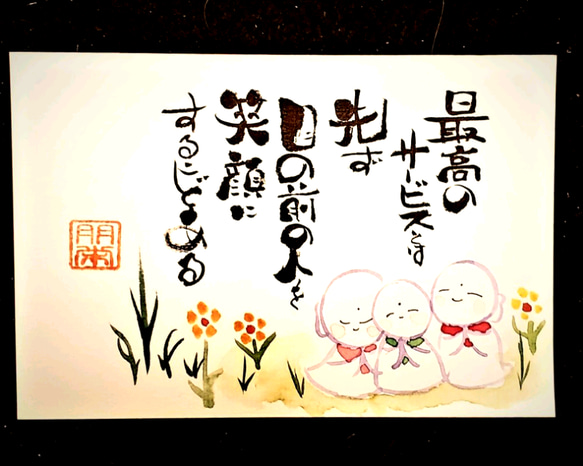 最高の
サービスは
先ず
目の前の人を
笑顔に
することである